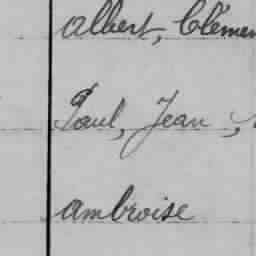 Albert, Clémen
Paul, Jean,
Ambroise